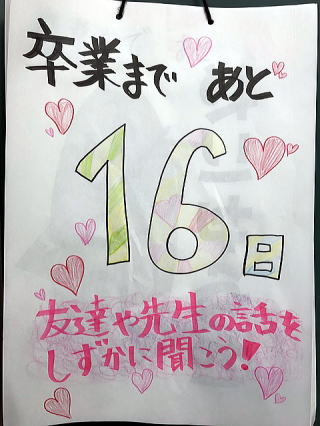 卒業まで あと
16日
友達や先生の話を
しずかに聞こう!